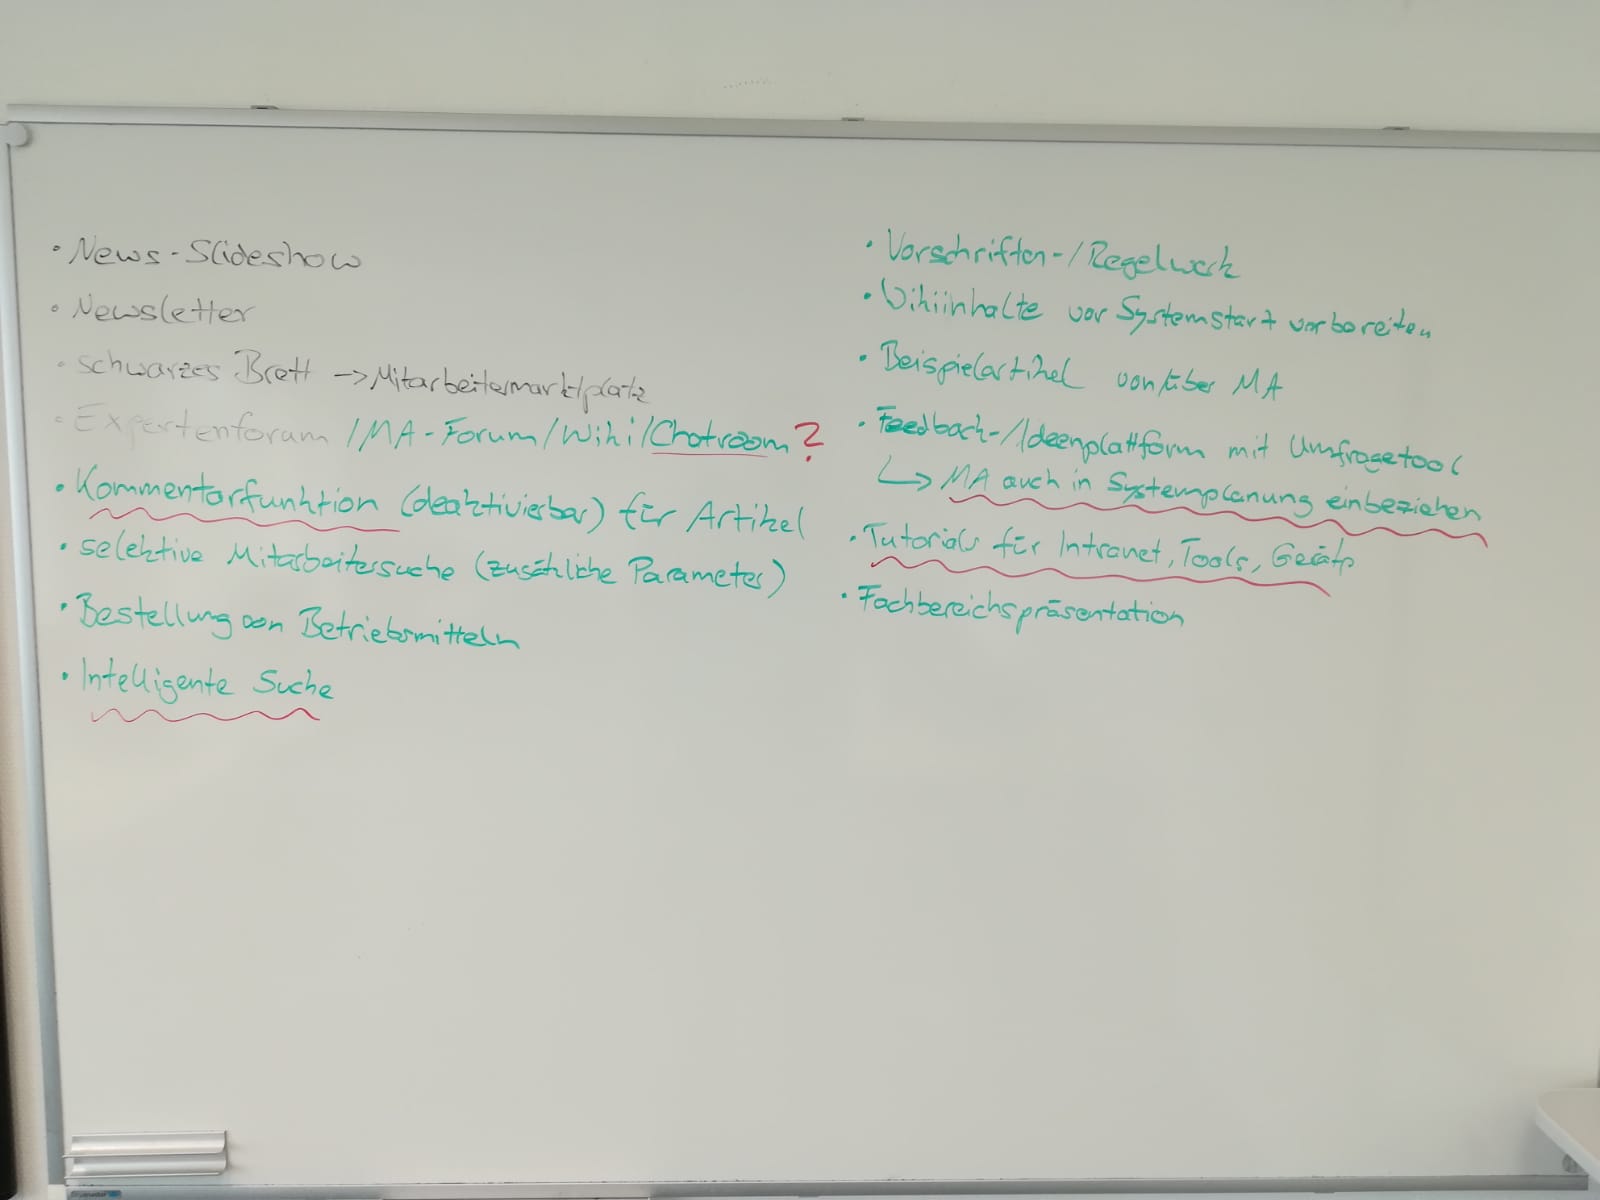 • News-Slideshow
• Newsletter
• schwarzes Brett -> Mitarbeitermarktplatz
• Expertenforum /MA-Forum/Wiki/Chatroom?
• Kommentarfunktion (deaktivierbar) für Artikel
• selektive Mitarbeitersuche (zusätzliche Parameter)
• Bestellung von Betriebsmitteln
• Intelligente Suche
• Vorschriften-/Regelwerk
• Wikiinhalte vor Systemstart vorbereiten
• Beispielartikel von/über MA
• Feedback-/Ideenplattform mit Umfragetool
↳ MA auch in Systemplanung einbeziehen
• Tutorials für Intranet, Tools, Geräte
• Fachbereichspräsentation